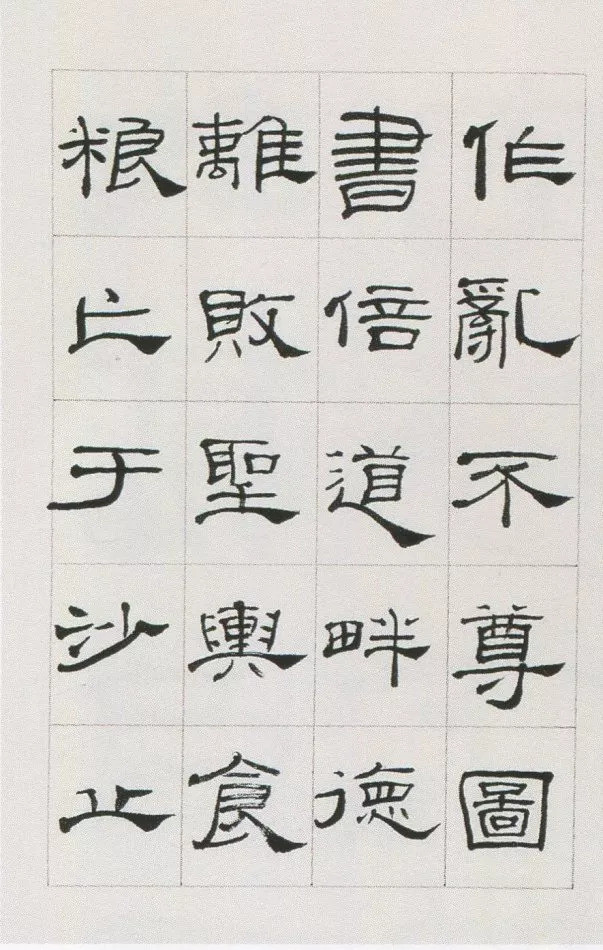 作亂不尊圖
書倍道畔德
離敗聖輿食
粮亡于沙丘